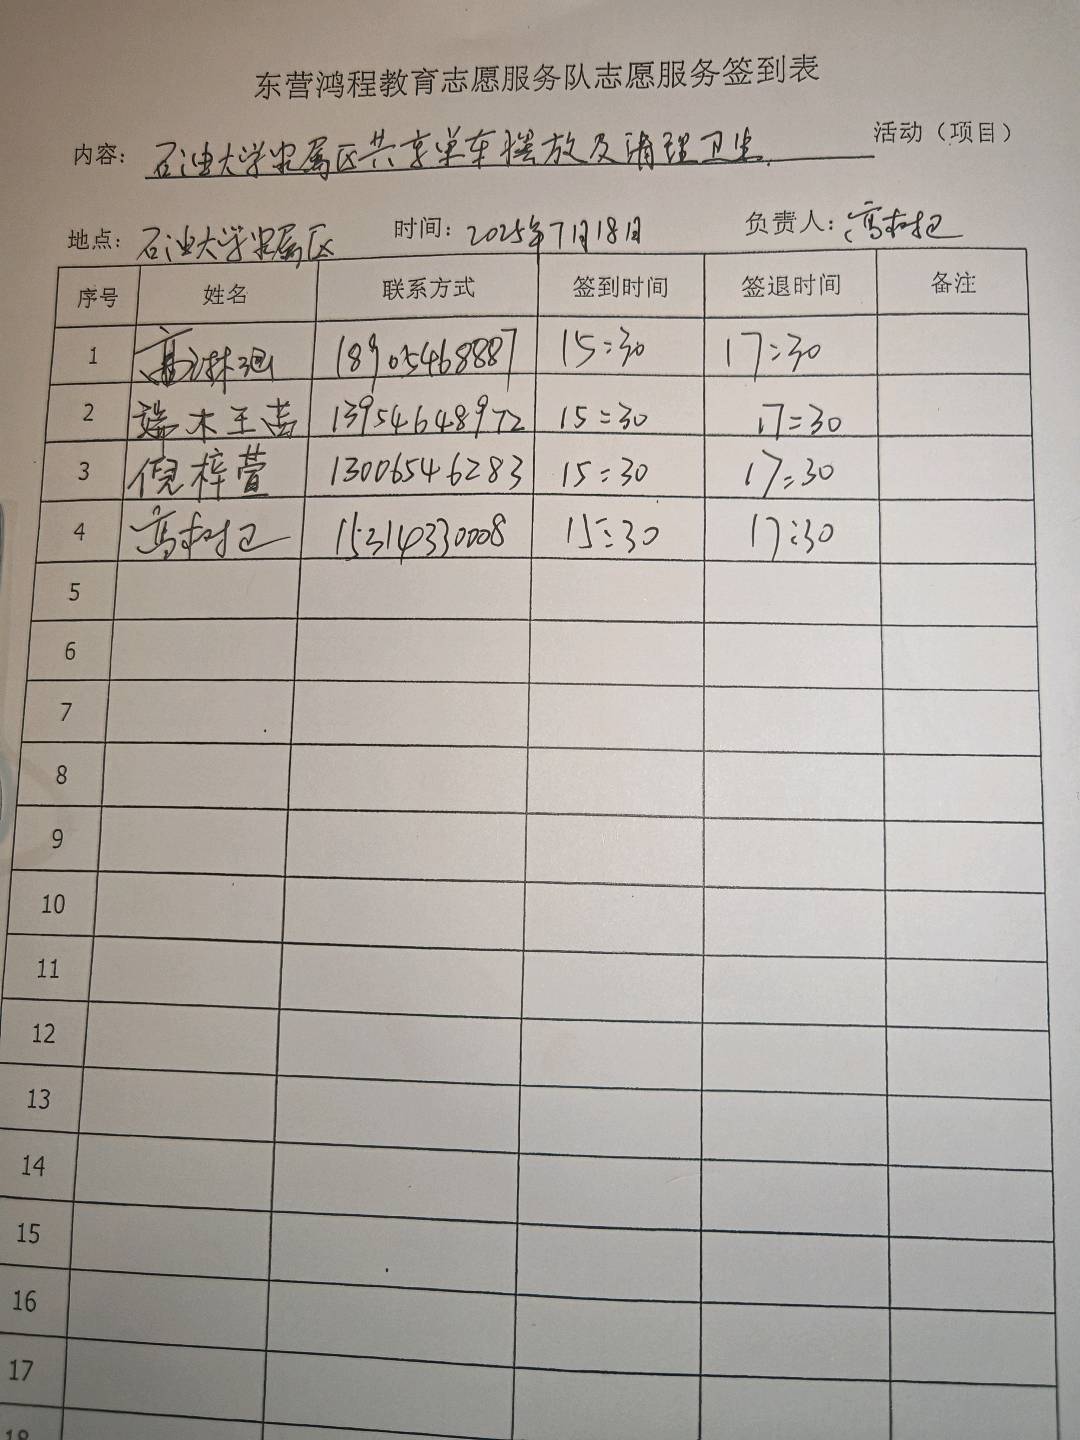 东营鸿程教育志愿服务队志愿服务签到表
内容: 石油大学家属区共享单车摆放及清理卫生. 活动（项目）
地点: 石油大学家属区 时间: 2025年7月18日 负责人: 高树卫
序号 姓名 联系方式 签到时间 签退时间 备注
1 18905468887 15:30 17:30
2 端木王 13954648972 15:30 17:30
3 倪梓萱 13006546283 15:30 17:30
4 高树卫 15314330008 15:30 17:30
5
6
7
8
9
10
11
12
13
14
15
16
17
18